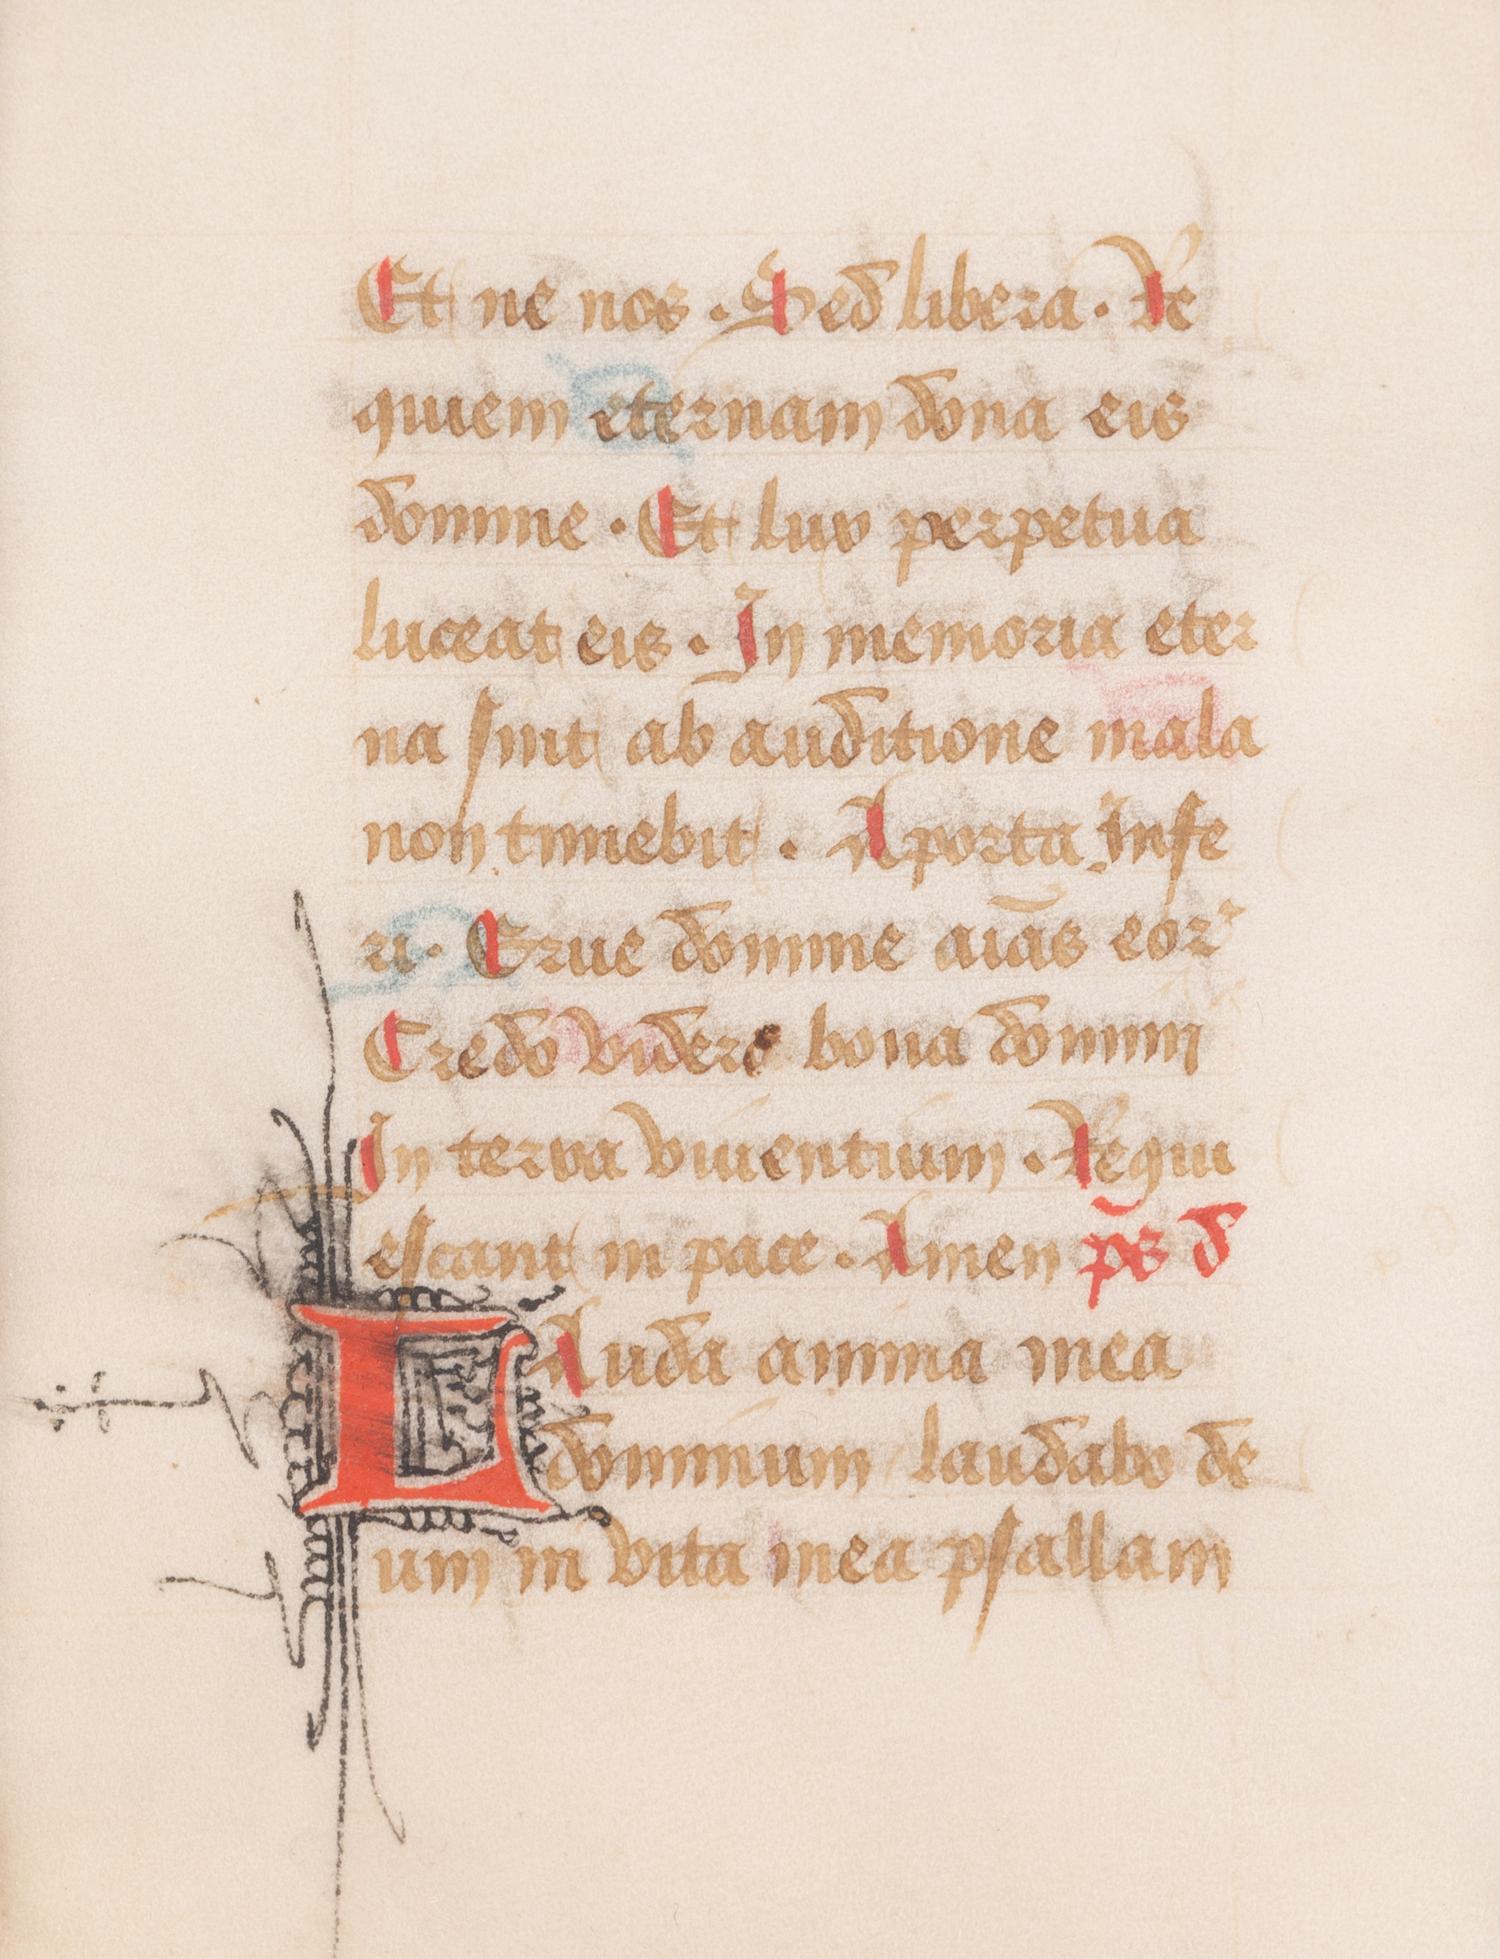 Et ne nos · Sed libera · Re
quiem eternam dona eis
domine · Et lux perpetua
luceat eis · In memoria eter
na sint ab auditione mala
non timebit · A porta infe
ri · Erue domine aīas eoꝝ
Credo videre bona domini
In terra viuentium · Requi
escant in pace · Amen ps̄ d
LAuda anima mea
dominum laudabo de
um in vita mea psallam